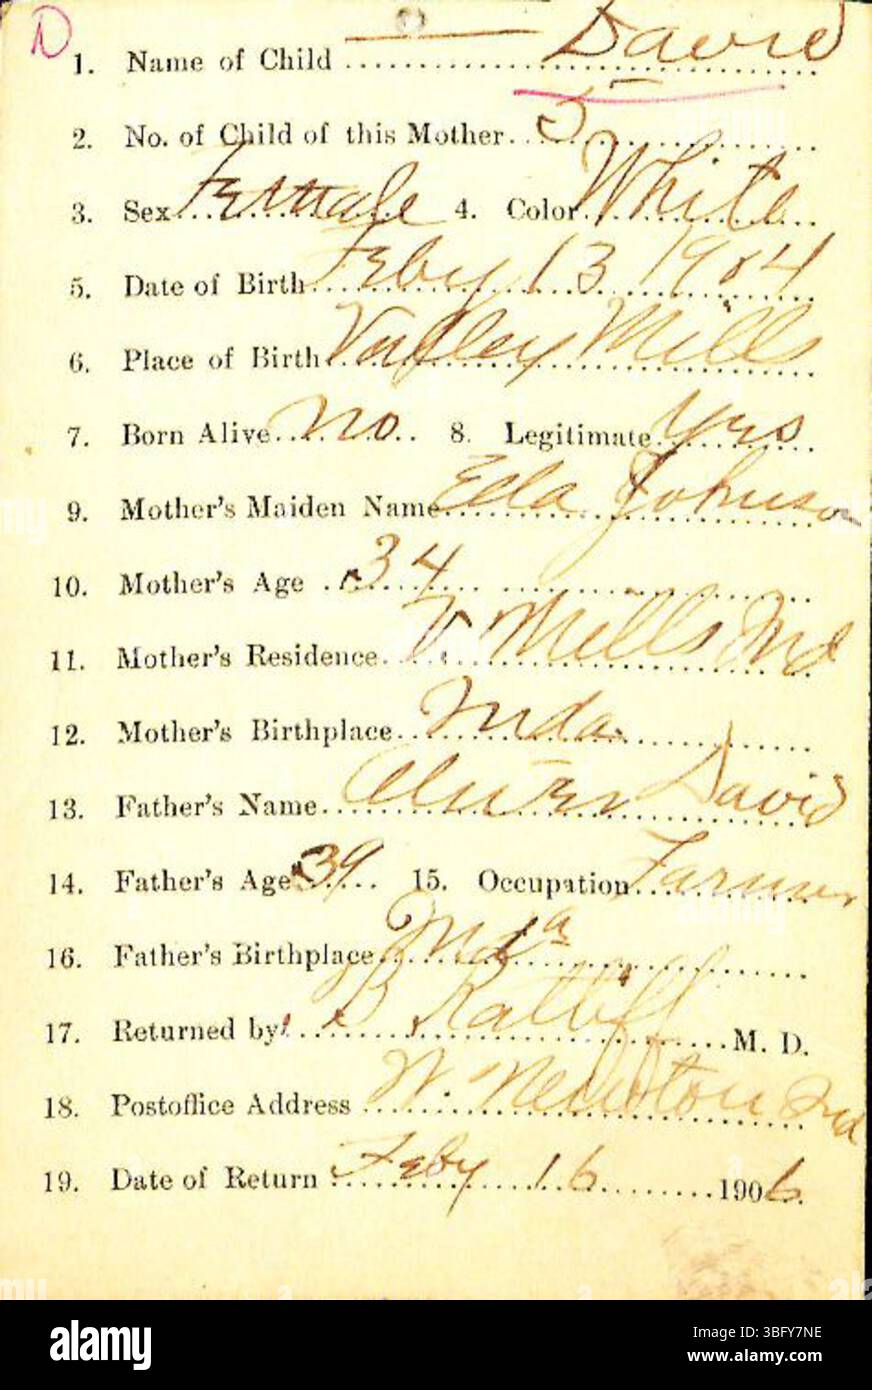 D
1. Name of Child — David
2. No. of Child of this Mother 5
3. Sex Female 4. Color White
5. Date of Birth Feby 13 1904
6. Place of Birth Valley Mills
7. Born Alive no 8. Legitimate yes
9. Mother's Maiden Name Eda Johnson
10. Mother's Age 34
11. Mother's Residence V Mills Ind
12. Mother's Birthplace Inda
13. Father's Name David
14. Father's Age 39 15. Occupation Farmer
16. Father's Birthplace Inda
17. Returned by B Ratliff M. D.
18. Postoffice Address W. Newton Ind
19. Date of Return Feby 16 1906
alamy
Image ID: 3BFY7NE
www.alamy.com